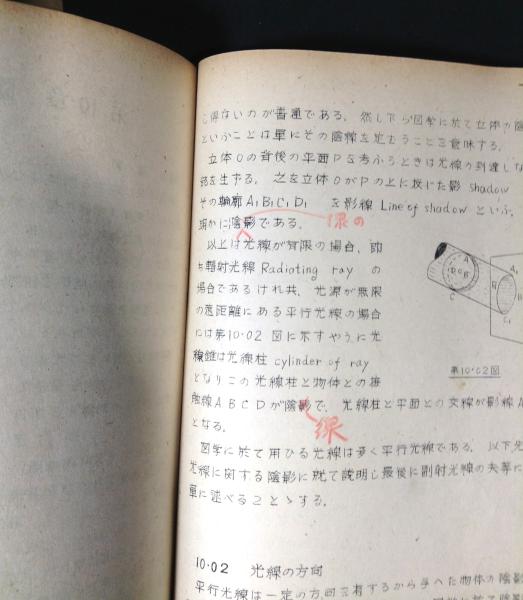 得ないのが普通である. 然し下ら図学に於て立体の陰
といふことは単にその陰線を定むることを意味する.
立体Oの背後の平面Pを考ふるときは光線の到達しな
部を生ずる. 之を立体OがPの上に投じた影 shadow
その輪廓 A₁B₁C₁D₁ を影線 Line of shadow といふ.
明かに陰影である. 線の
以上は光線が有限の場合, 即
ち輻射光線 Radiating ray の
場合であるけれ共, 光源が無限
の遠距離にある平行光線の場合
には第10·02 図に示すやうに光
線錐は光線柱 cylinder of ray
となりこの光線柱と物体との接
触線 A B C D が陰影で, 光線柱と平面との交線が影線 A
線
となる.
図学に於て用ひる光線は多く平行光線である. 以下光
光線に関する陰影に就て説明し最後に副射光線の夫等に
単に述べることゝする.
A
D
B
C
A₁
B
C₁
第10·02図
10·02 光線の方向
平行光線は一定の方向を有するから与へた物体の陰影